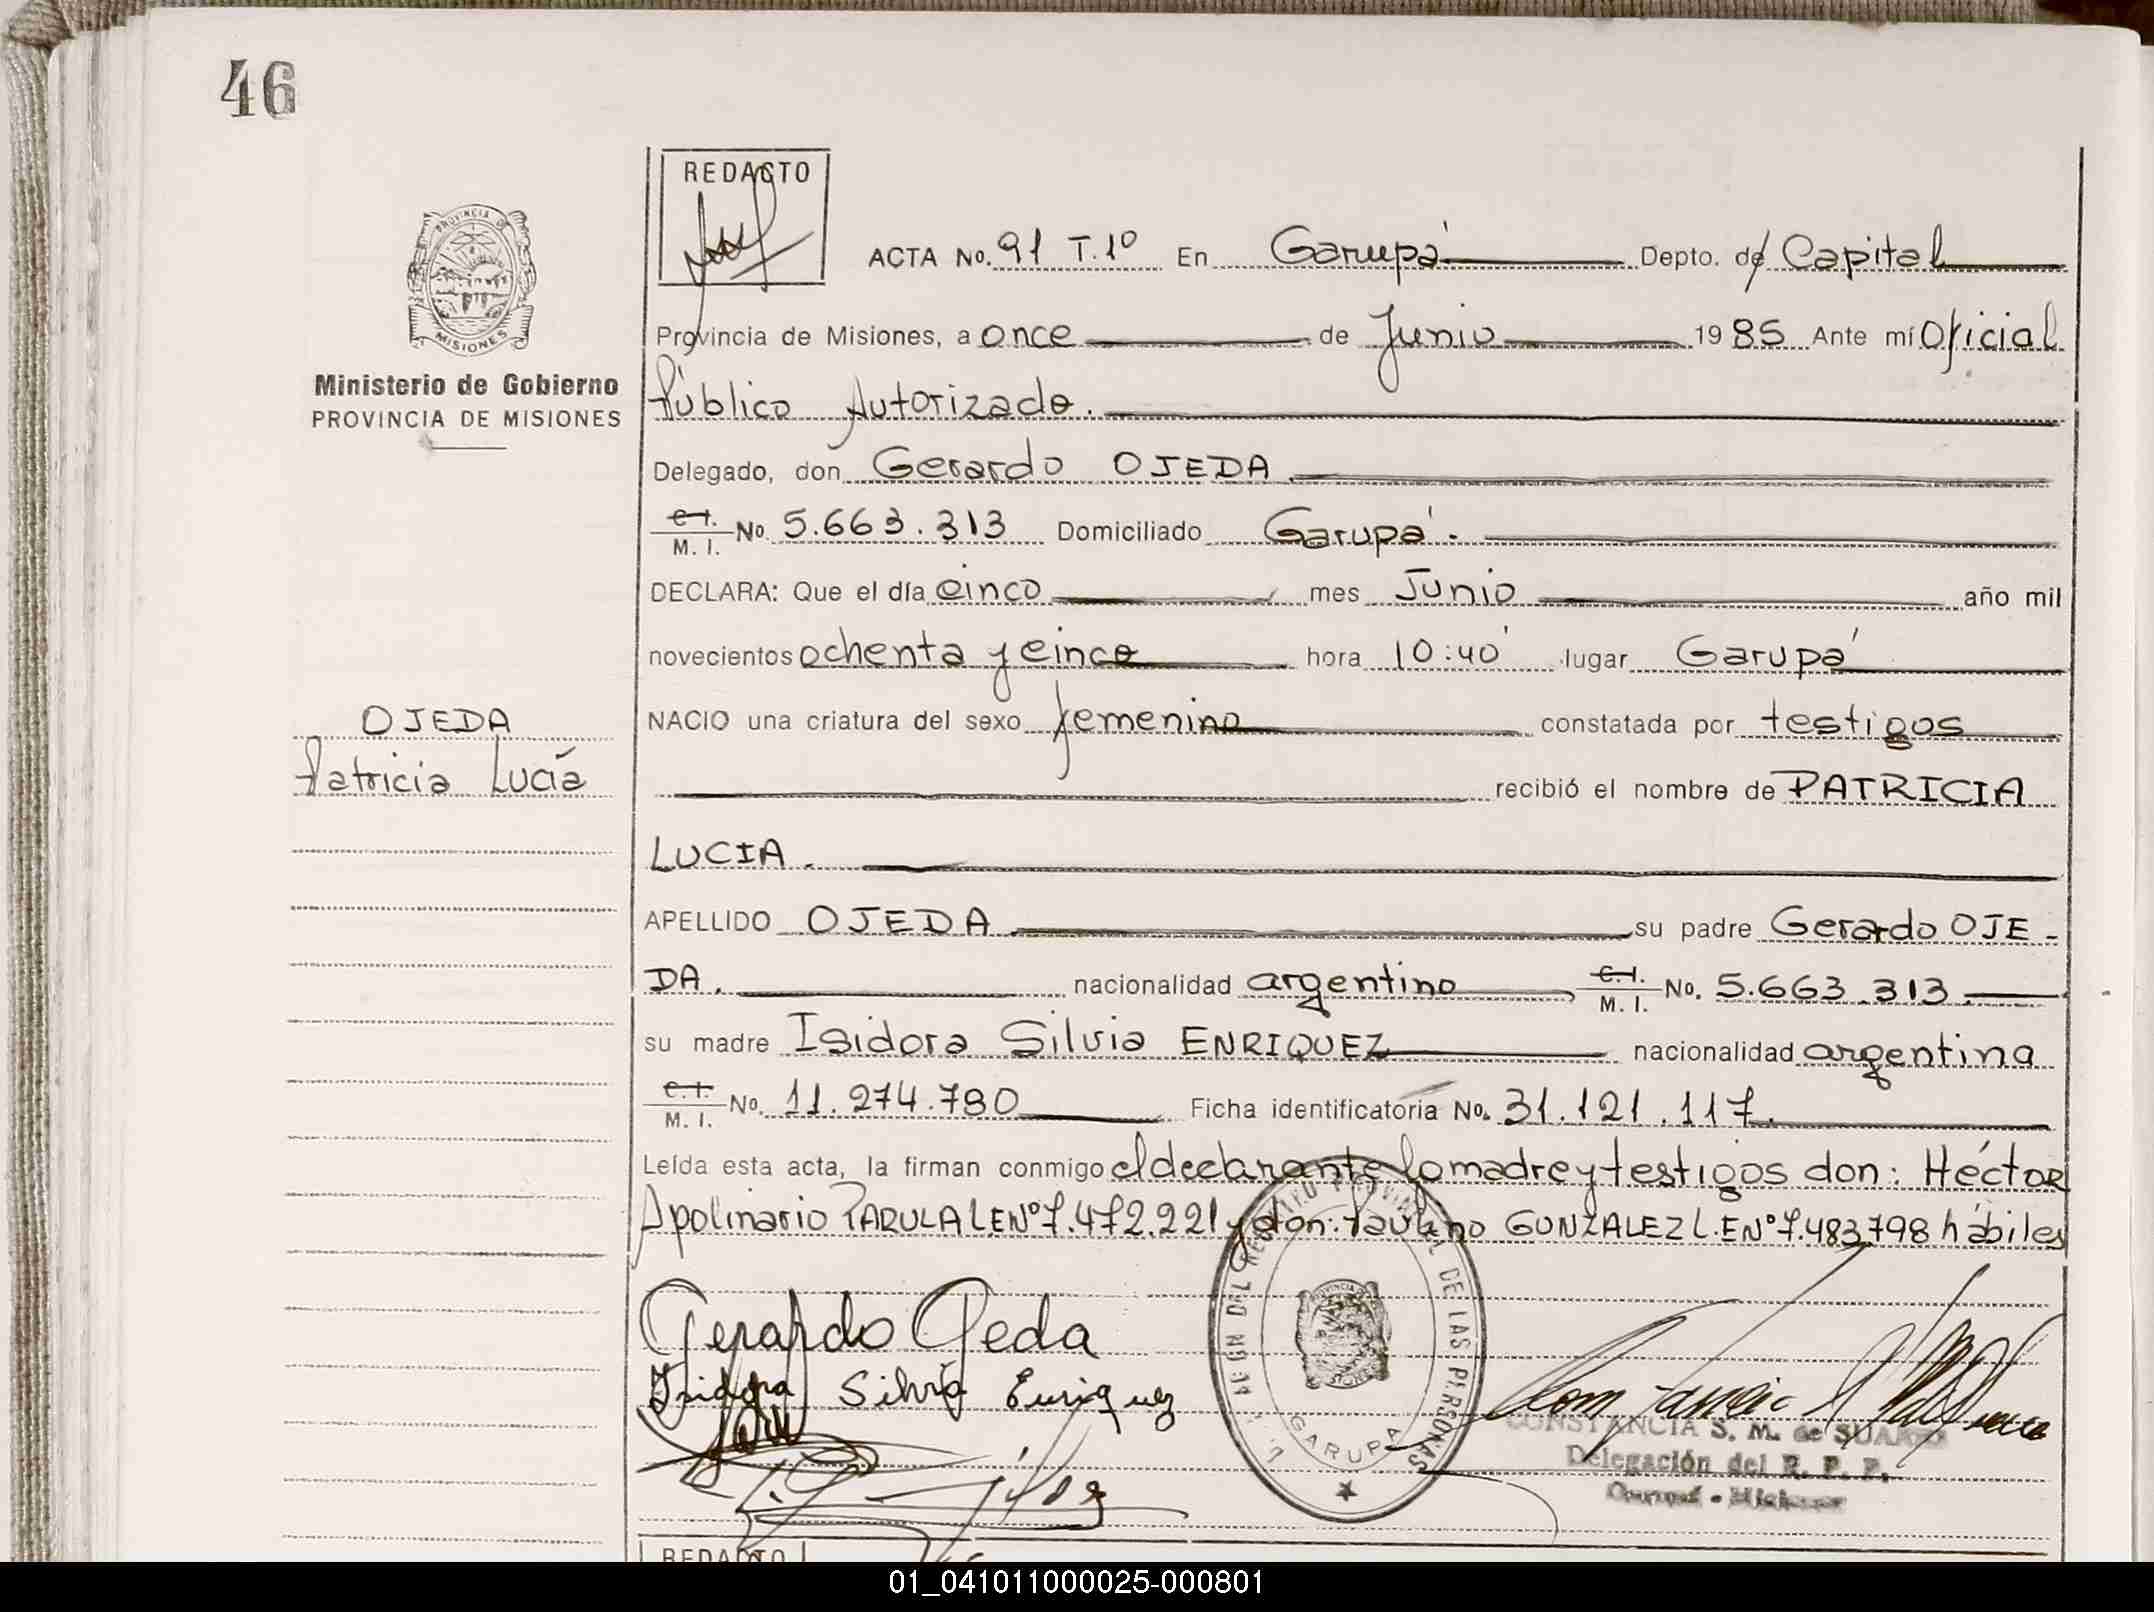 46
REDACTO
PROVINCIA DE
MISIONES
Ministerio de Gobierno
PROVINCIA DE MISIONES
ACTA No. 91 T.1º En Garupá Depto. de Capital
Provincia de Misiones, a once de Junio 1985 Ante mí Oficial
Público Autorizado.
Delegado, don Gerardo OJEDA.
C.I. M. I. No. 5.663.313 Domiciliado Garupá.
DECLARA: Que el día cinco mes Junio año mil
novecientos ochenta y cinco hora 10:40' lugar Garupá
NACIO una criatura del sexo femenino constatada por testigos
OJEDA
Patricia Lucía
recibió el nombre de PATRICIA
LUCIA.
APELLIDO OJEDA su padre Gerardo OJE-
DA. nacionalidad argentino C.I. M. I. No. 5.663.313.
su madre Isidora Silvia ENRIQUEZ nacionalidad argentina
C.I. M. I. No. 11.274.780 Ficha identificatoria No. 31.121.117.
Leída esta acta, la firman conmigo el declarante, la madre y testigos don: Héctor
Apolinario PARULA L.E Nº 7.472.221 y don: Paulino GONZALEZ L.E Nº 7.483798 hábiles
Gerardo Ojeda
Isidora Silvia Enriquez
DEL REGISTRO PROVINCIAL DE LAS PERSONAS
GARUPA
CONSTANCIA S. M. de SUAREZ
Delegación del R. P. P.
Garupá - Misiones
REDACTO
01_041011000025-000801